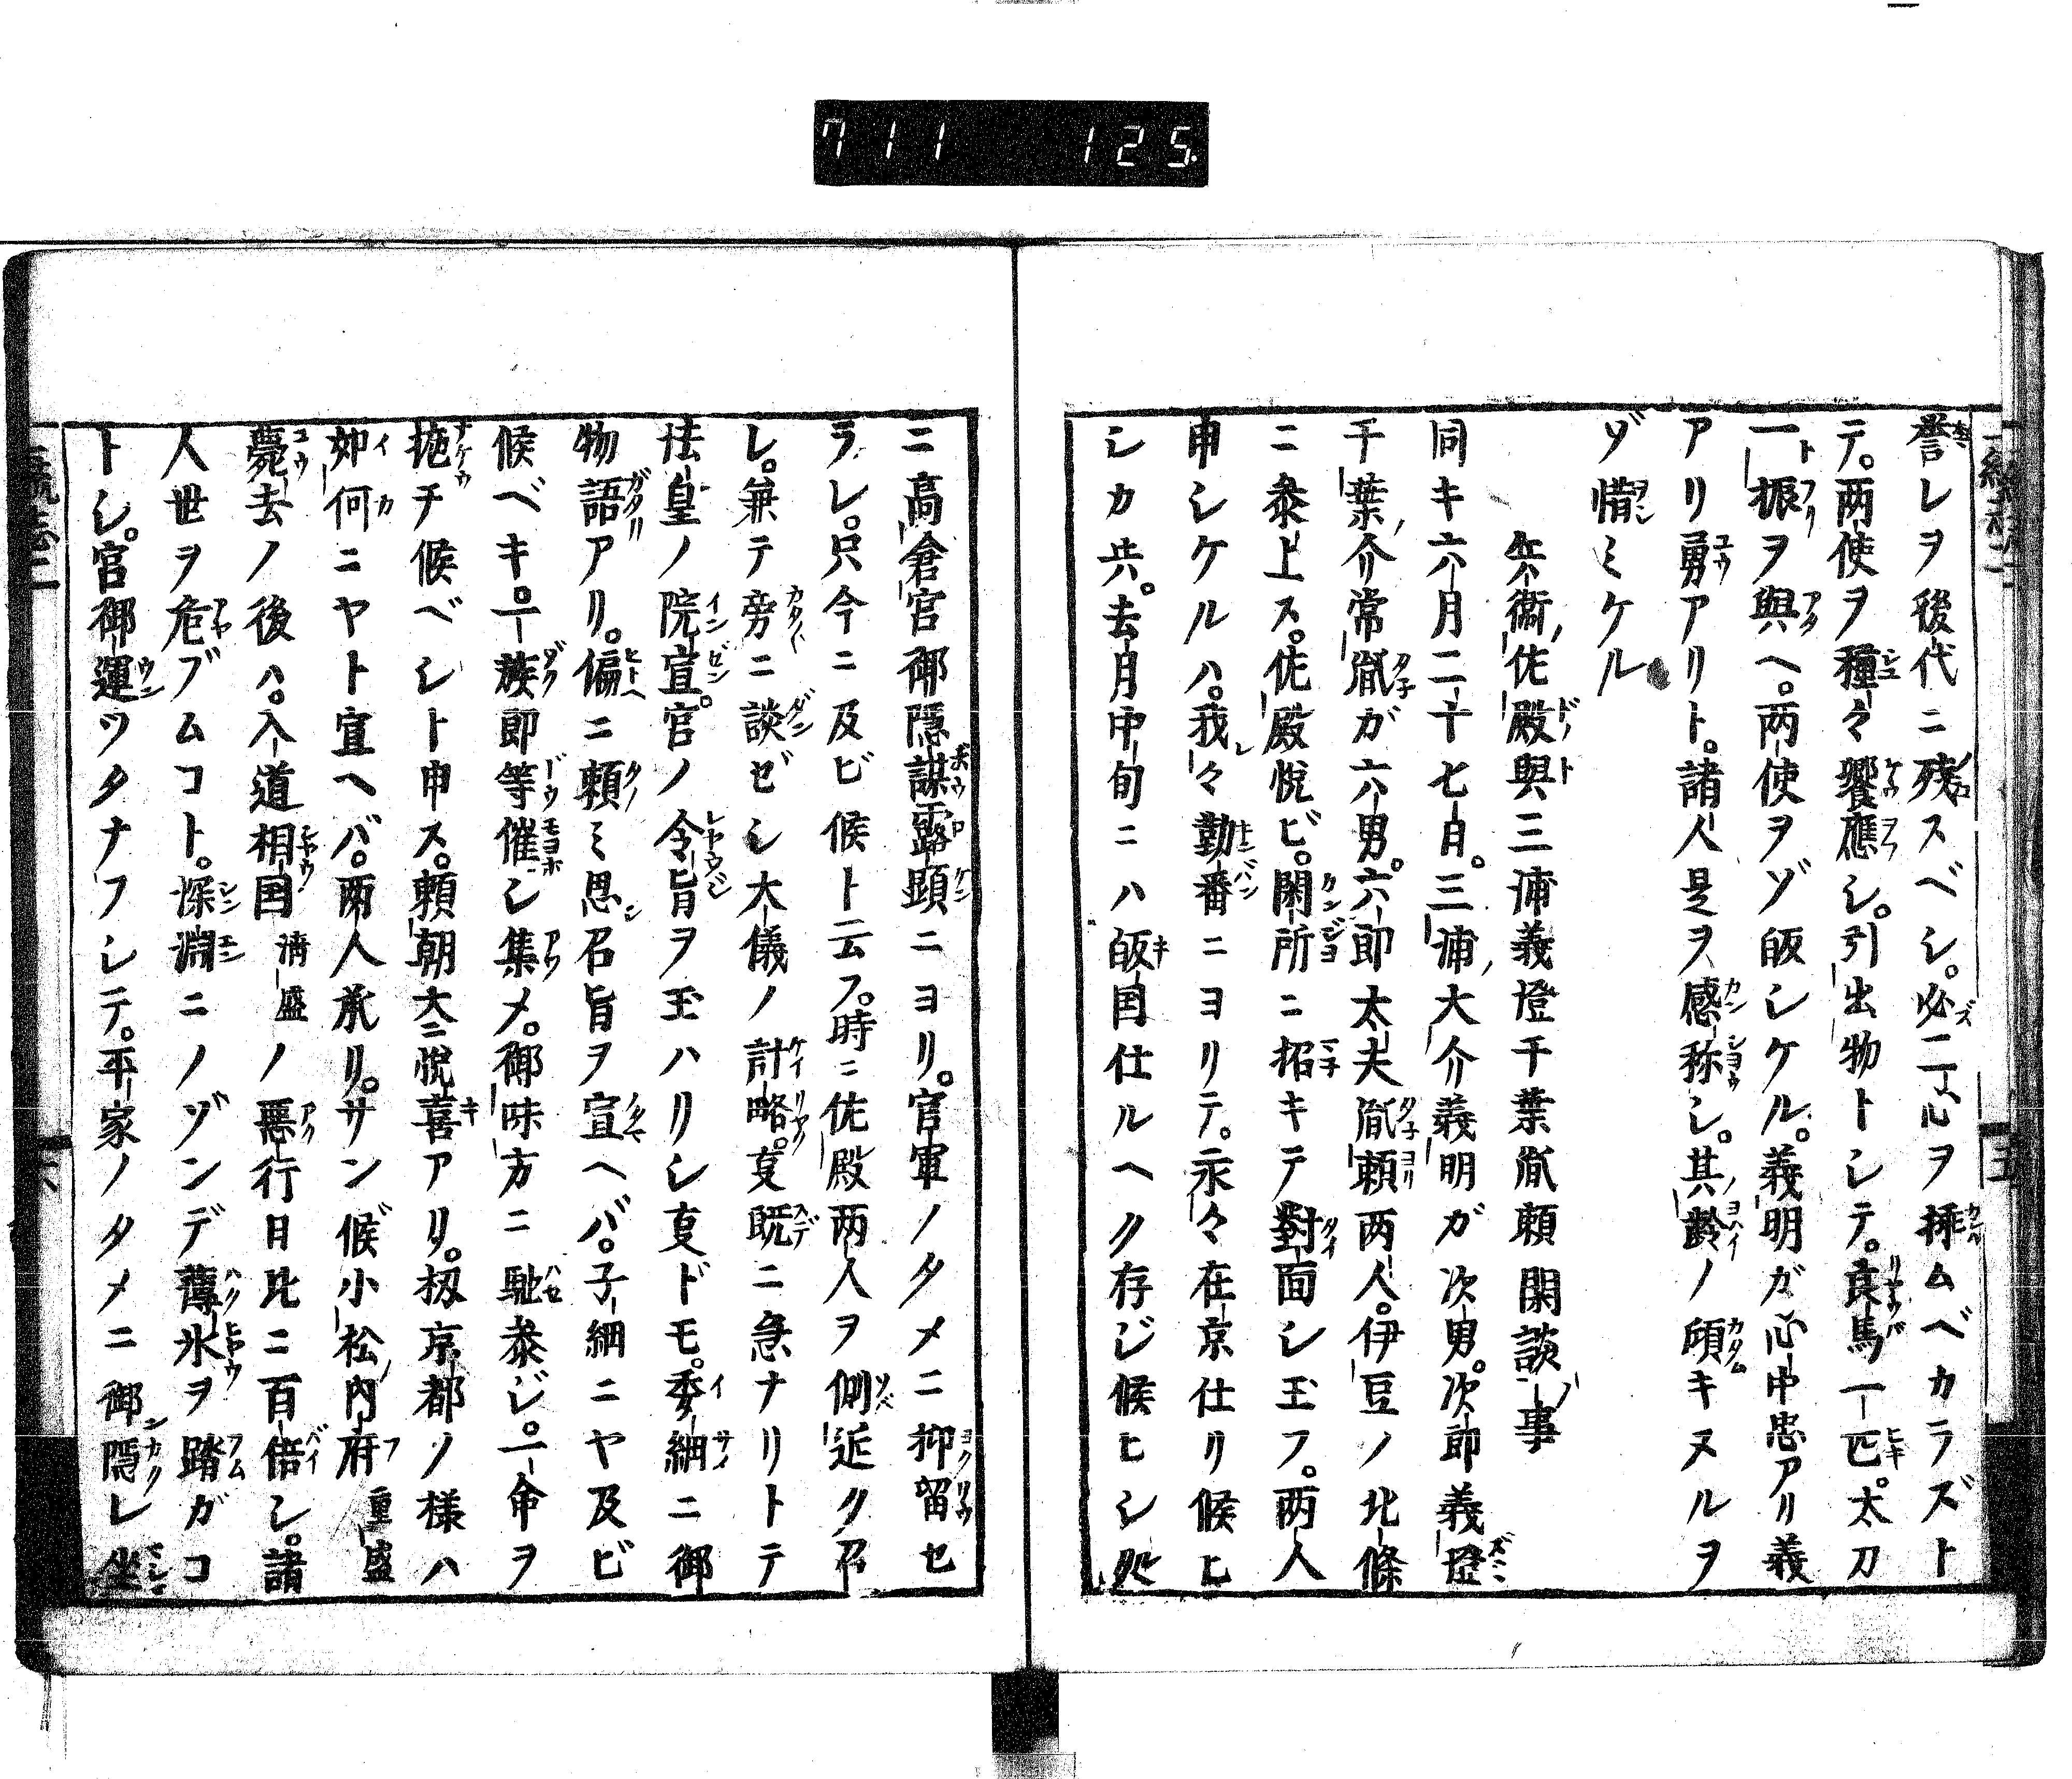 711 125
誉レヲ後代ニ残スベシ。必二心ヲ挿ムベカラズト
テ。両使ヲ種々饗應シ。引出物トシテ。良馬一匹。太刀
一振ヲ與ヘ。両使ヲゾ皈シケル。義明ガ心中忠アリ義
アリ勇アリト。諸人是ヲ感称シ。其齢ノ傾キヌルヲ
ゾ惜ミケル
兵衞佐殿與三浦義澄千葉胤頼閑談事
同キ六月二十七日。三浦大介義明ガ次男。次郎義澄
千葉介常胤ガ六男。六郎太夫胤頼両人。伊豆ノ北條
ニ参上ス。佐殿悦ビ。閑所ニ招キテ對面シ玉フ。両人
申シケルハ。我々勤番ニヨリテ。永々在京仕リ候ヒ
シカ共。去月中旬ニハ皈国仕ルヘク存ジ候ヒシ処
ニ高倉宮御隠謀露顕ニヨリ。官軍ノタメニ抑留セ
ラレ。只今ニ及ビ候ト云フ。時ニ佐殿両人ヲ側近ク召
レ。兼テ旁ニ談ゼシ大儀ノ計略。叓既ニ急ナリトテ
法皇ノ院宣。宮ノ令旨ヲ玉ハリシ叓ドモ。委細ニ御
物語アリ。偏ニ頼ミ思召旨ヲ宣ヘバ。子細ニヤ及ビ
候ベキ。一族郎等催シ集メ。御味方ニ馳参ジ。一命ヲ
抛チ候ベシト申ス。頼朝大ニ悦喜アリ。扨京都ノ様ハ
如何ニヤト宣ヘバ。両人承リ。サン候小松内府重盛
薨去ノ後ハ。入道相国清盛ノ悪行日比ニ百倍シ。諸
人世ヲ危ブムコト。深淵ニノゾンデ薄氷ヲ踏ガコ
トシ。宮御運ツタナフシテ。平家ノタメニ御隠レ坐